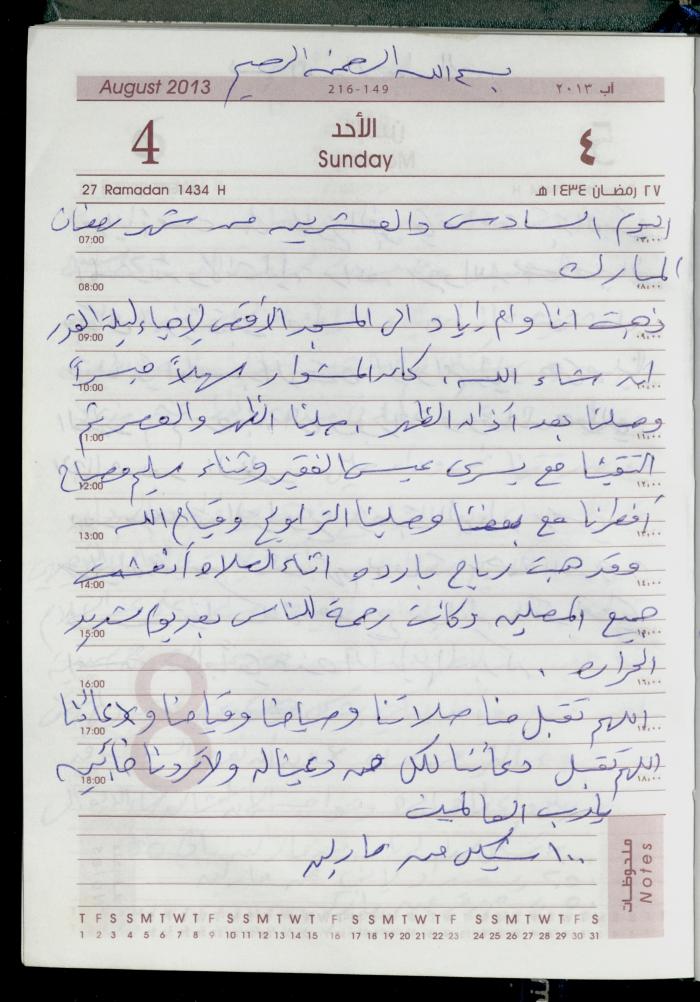 بسم الله الرحمن الرحيم
August 2013 216-149 آب ٢٠١٣
4 الأحد ٤
Sunday
27 Ramadan 1434 H ٢٧ رمضان ١٤٣٤ هـ
اليوم السادس والعشرين من شهر رمضان
07:00
المبارك
08:00 ٠٨,٠٠
ذهبت انا وام زياد الى المسجد الأقصى لإحياء ليلة القدر
09:00 ٠٩,٠٠
ان شاء الله. كان المشوار سهلاً
10:00 ١٠,٠٠
وصلنا بعد أذان الظهر. صلينا الظهر والعصر ثم
11:00 ١١,٠٠
التقينا مع يسرى عيسى الفقير وثناء سليم مصباح
12:00 ١٢,٠٠
أفطرنا مع بعضنا وصلينا التراويح وقيام الله
13:00 ١٣,٠٠
وقد هبت رياح بارده اثناء الصلاه أنعشت
14:00 ١٤,٠٠
جميع المصلين وكانت رحمة للناس بعد يوم شديد
15:00 ١٥,٠٠
الحراره.
16:00 ١٦,٠٠
اللهم تقبل منا صلاتنا وصيامنا وقيامنا ودعائنا
17:00 ١٧,٠٠
اللهم تقبل دعائنا لكل من دعينا له ولا تردنا خائبين
18:00 ١٨,٠٠
يا رب العالمين
١٠٠ شيكل من
ملحوظات
Notes
8
T F S S M T W T F S S M T W T F S S M T W T F S S M T W T F S
1 2 3 4 5 6 7 8 9 10 11 12 13 14 15 16 17 18 19 20 21 22 23 24 25 26 27 28 29 30 31